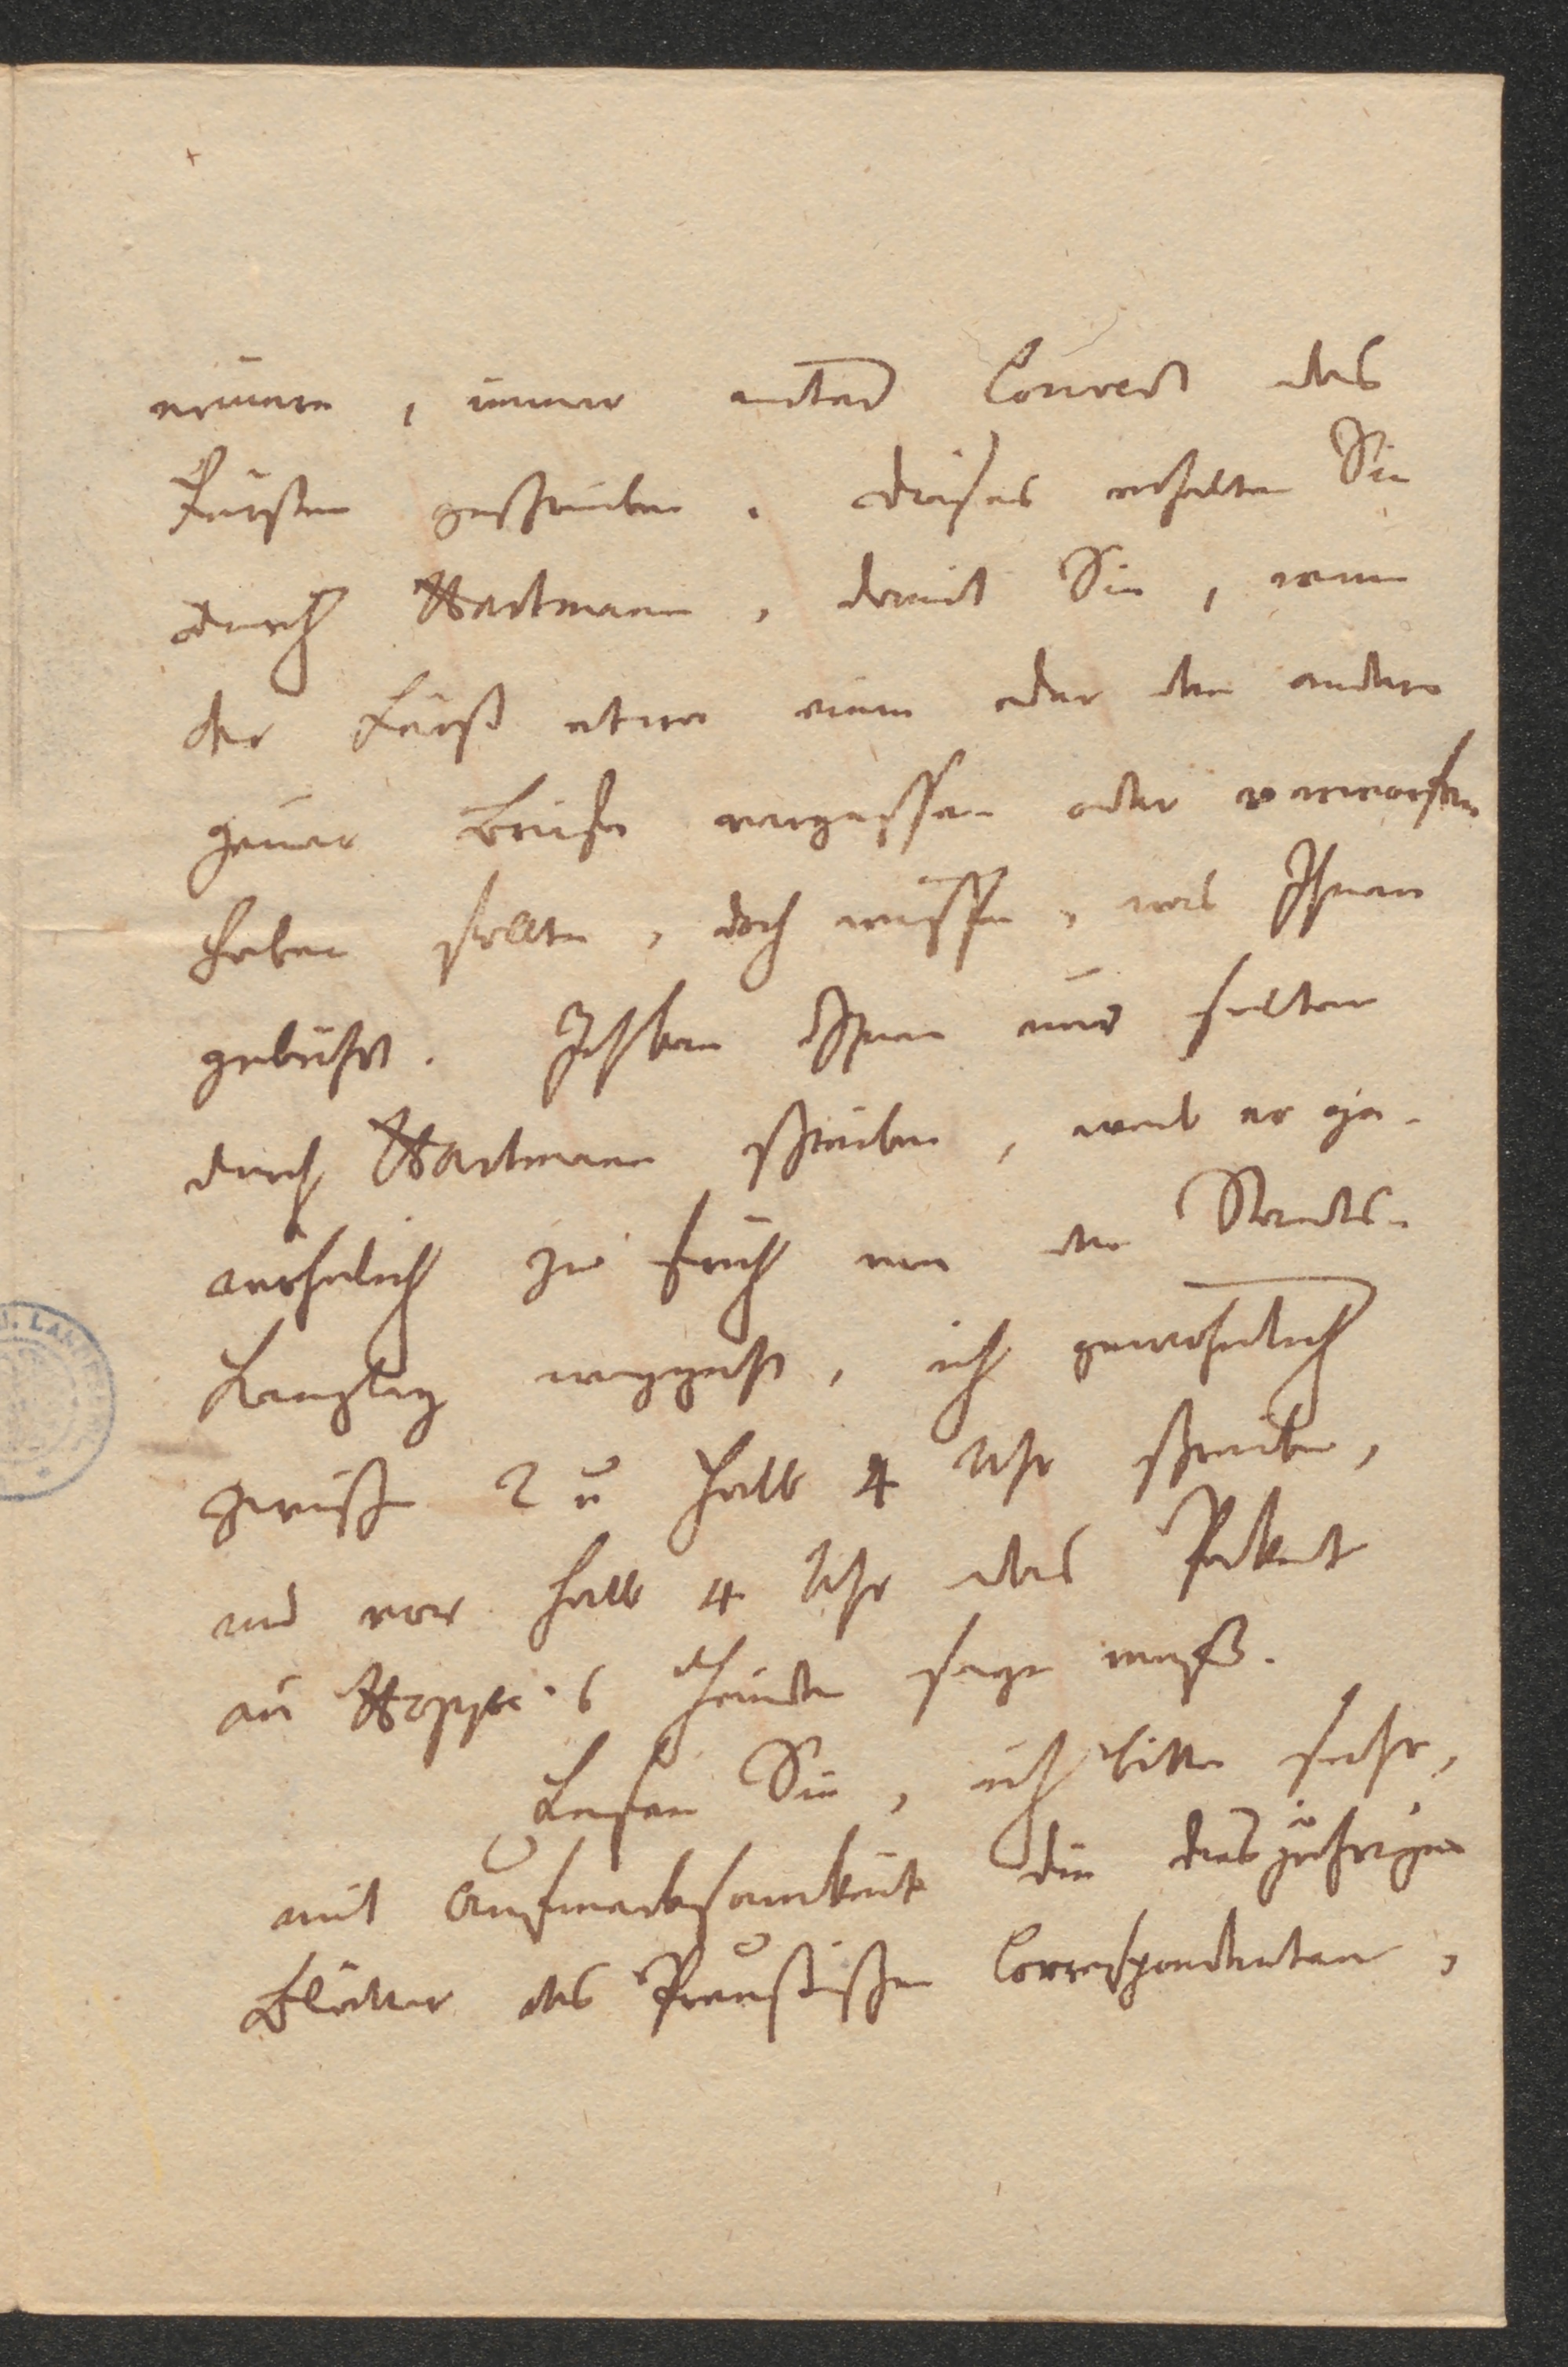 erinnere, immer unter Couvert des
Fürsten geschrieben. Dieses erhalten Sie
durch Hartmann, damit Sie, wenn
der Fürst etwa einen oder den andern
jener Briefe vergessen oder verworfen
haben sollte, doch wissen, was Ihnen
gebührt. Ich kan Ihnen nur selten
durch Hartmann schreiben, weil er ge-
wöhnlich zu früh von der Staats-
Kanzley weggeht, ich gewöhnlich
zwischen 2 u halb 4 Uhr schreibe,
und vor halb 4 Uhr das Paket
in Hoppe's Händen seyn muß.
Lesen Sie, ich bitte sehr,
mit Aufmerksamkeit die diesjährigen
Blätter des Preußischen Correspondenten,